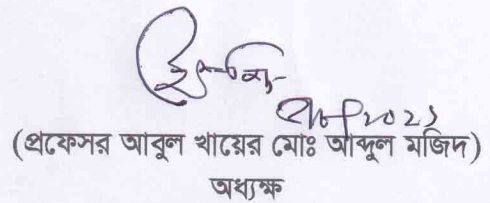 (প্রফেসর আবুল খায়ের মোঃ আব্দুল মজিদ)
অধ্যক্ষ